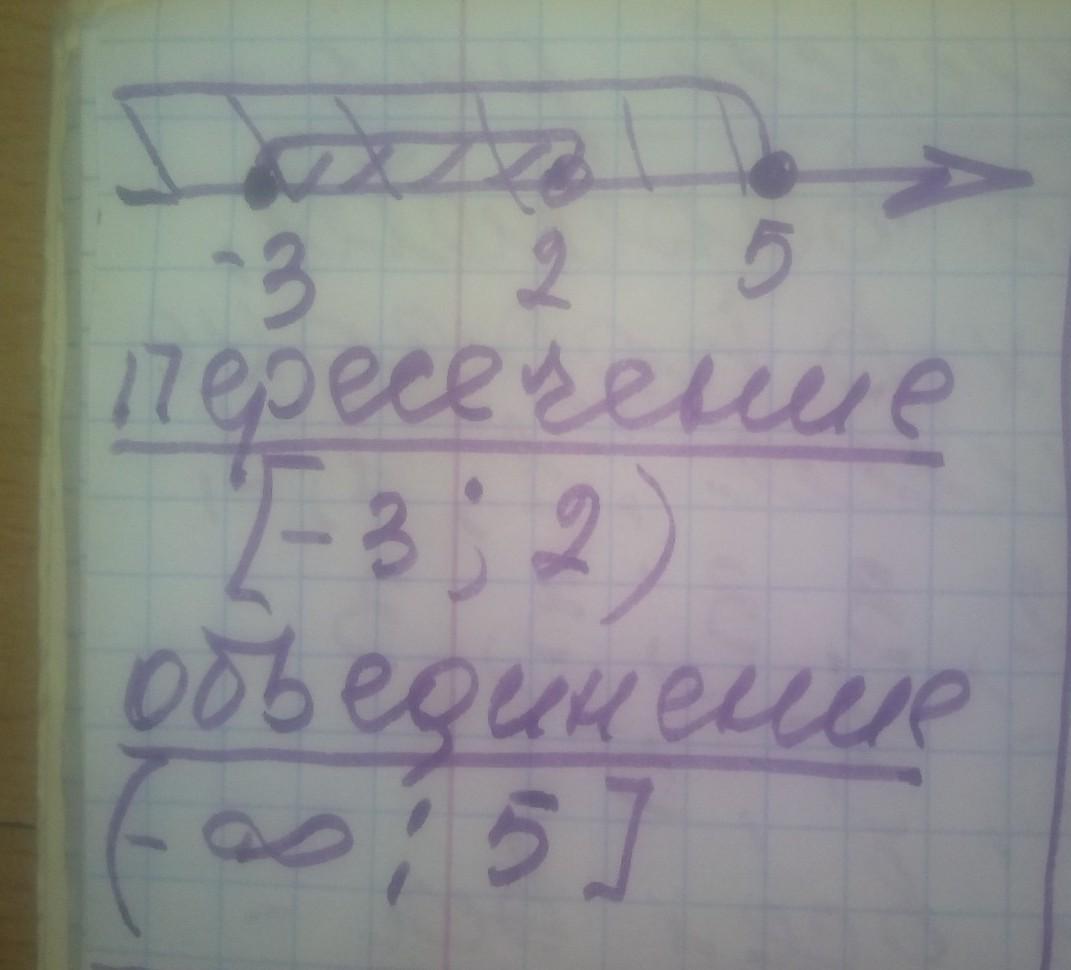 -3 2 5
пересечение
[-3; 2)
объединение
(-∞; 5]